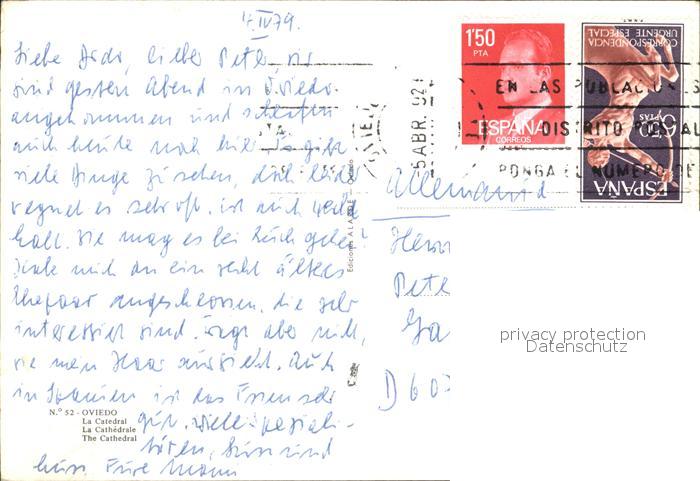 4.IV79.
Liebe Dodo, lieber Peter, wir
sind gestern Abend in Oviedo
angekommen und schlafen
auch heute noch hier. es gibt
viele Dinge zu sehen, doch leider
regnet es sehr oft. ist auch
kalt. Wie mag es bei Euch gehen?
habe mich an ein sehr älteres
Ehepaar angeschlossen, die sehr
interessiert sind. Fragt aber nicht,
wie mein Haar aussieht. Auch
in Spanien ist das Essen sehr
gut. viele Speziali-
täten, süss und
Eure Mami
N.º 52 - OVIEDO
La Catedral
La Cathédrale
The Cathedral
Ediciones A L A
Oviedo
1'50
PTA
ESPAÑA
CORREOS
CORRESPONDENCIA
URGENTE ESPECIAL
5
PTAS
ESPAÑA
OVIEDO
-5 ABR. 02
EN LAS POBLACIONES
DISTRITO POSTAL
PONGA EL NUMERO DE
Allemania
Herrn
Pete
Ga
D 60
privacy protection
Datenschutz